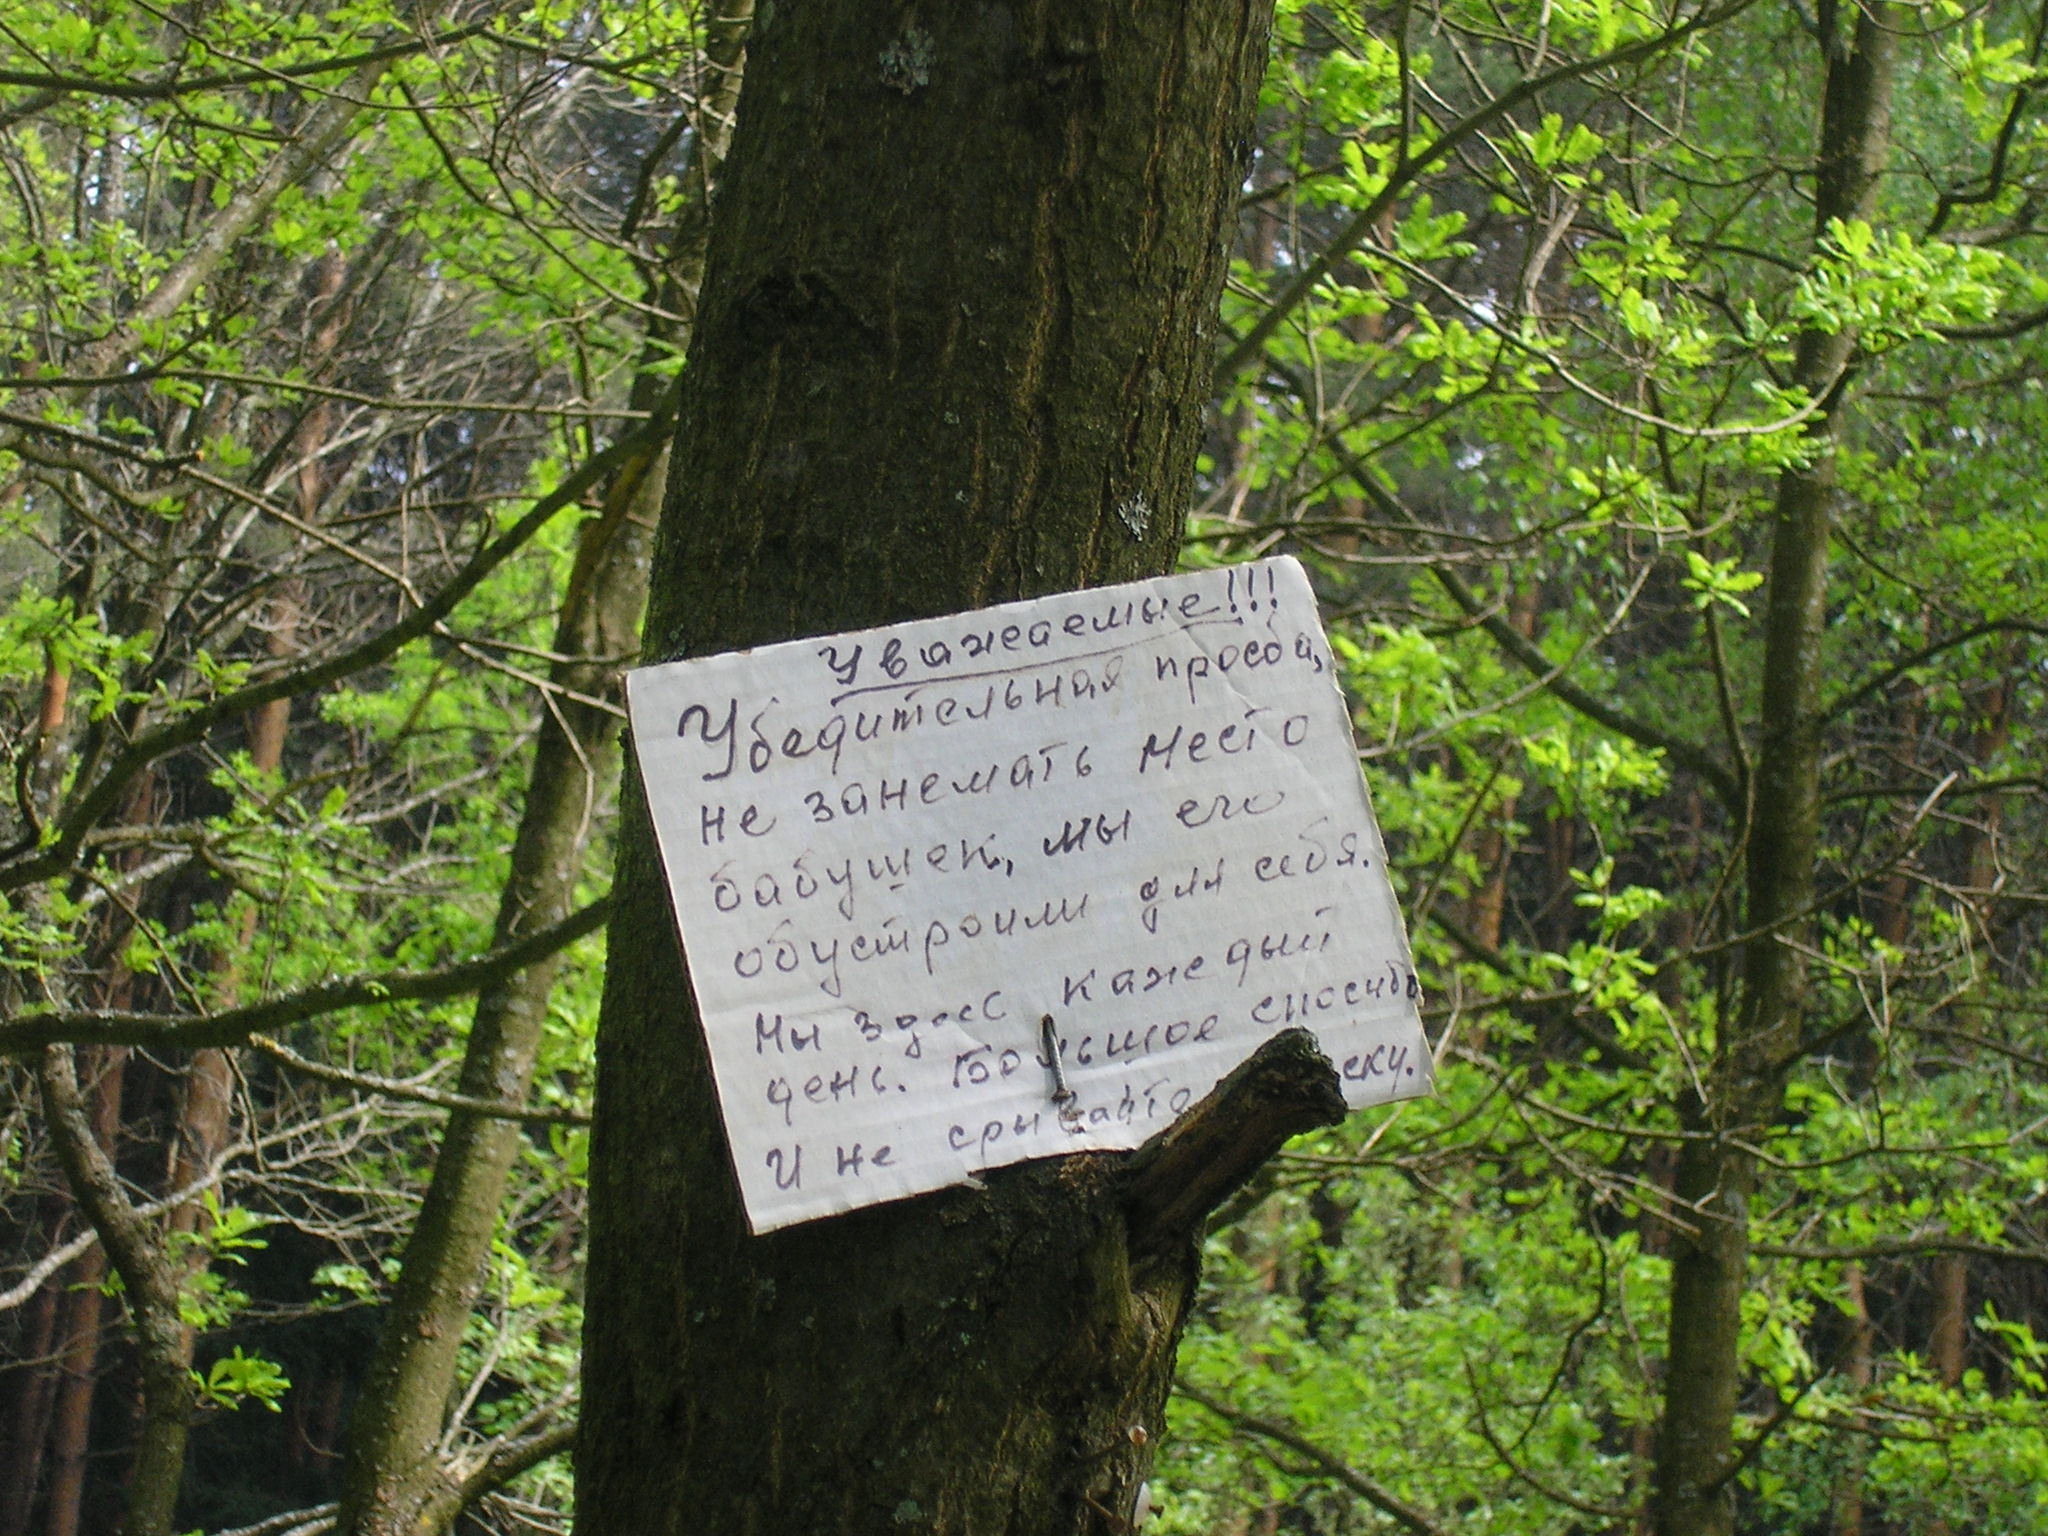 Уважаемые!!!
Убедительная просба,
не занемать место
бабушек, мы его
обустроили для себя.
Мы здесс каждый
день. Большое спосибо
И не срывайте еску.